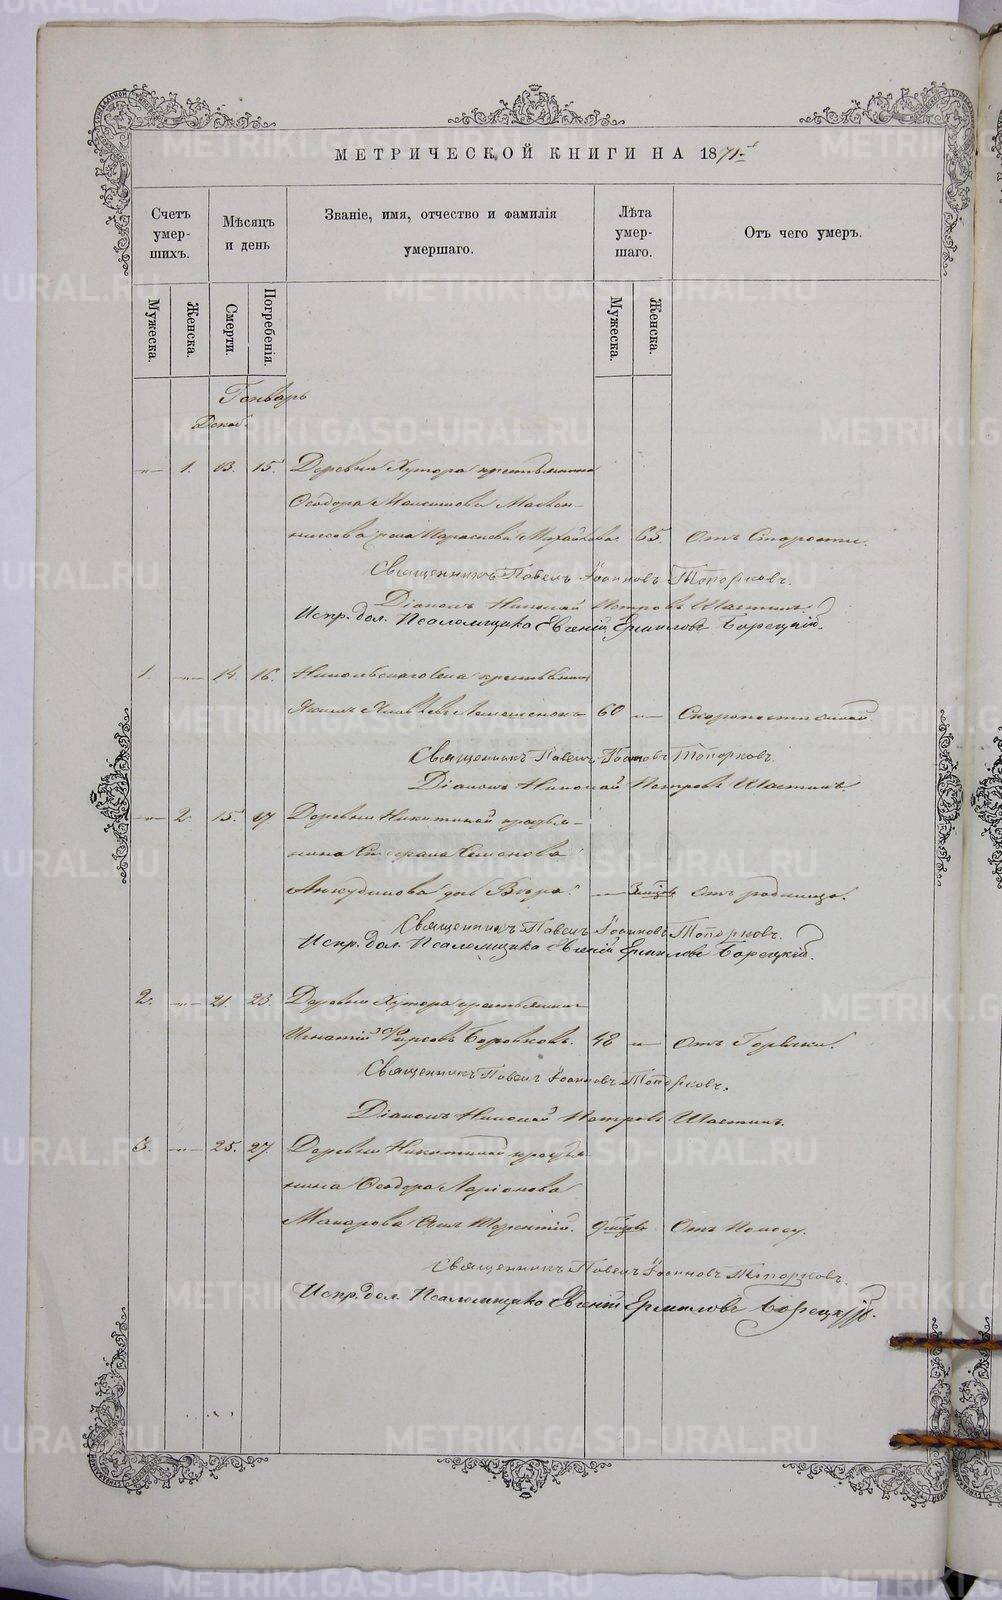 МЕТРИЧЕСКОЙ КНИГИ НА 1871-й
Счетъ умер-шихъ.
Мѣсяцъ и день
Званіе, имя, отчество и фамилія умершаго.
Лѣта умер-шаго.
Отъ чего умеръ.
Мужеска.
Женска.
Смерти.
Погребенія.
Мужеска.
Женска.
Генварь
1. 13. 15. Деревни Хутора крестьянина
Ѳеодора Максимова
жена Параскева Михайлова. 65. Отъ Старости.
Священникъ Павелъ Іоанновъ Топорковъ.
Діаконъ Николай Петровъ Шастинъ.
Испр. дол. Псаломщика Евгеній Ермиловъ Борецкій.
1. 14. 16. Никольскаго села крестьянинъ
60
Священникъ Павелъ Іоанновъ Топорковъ.
Діаконъ Николай Петровъ Шастинъ.
2. 15. 17 Деревни Никитиной крестья-
нина Семенова
Анкудинова дочь Вѣра. 3 мѣсяц. Отъ родимца.
Священникъ Павелъ Іоанновъ Топорковъ.
Испр. дол. Псаломщика Евгеній Ермиловъ Борецкій.
2. 21. 23. Деревни Хутора крестьянинъ
Игнатій Фирсовъ Боровковъ. 48 Отъ Горячки.
Священникъ Павелъ Іоанновъ Топорковъ.
Діаконъ Николай Петровъ Шастинъ.
3. 25. 27. Деревни Никитиной крестья-
нина Ѳеодора Ларіонова
Макарова сынъ Терентій. 9 мѣсяц. Отъ Поносу.
Священникъ Павелъ Іоанновъ Топорковъ.
Испр. дол. Псаломщика Евгеній Ермиловъ Борецкій.
METRIKI.GASO-URAL.RU